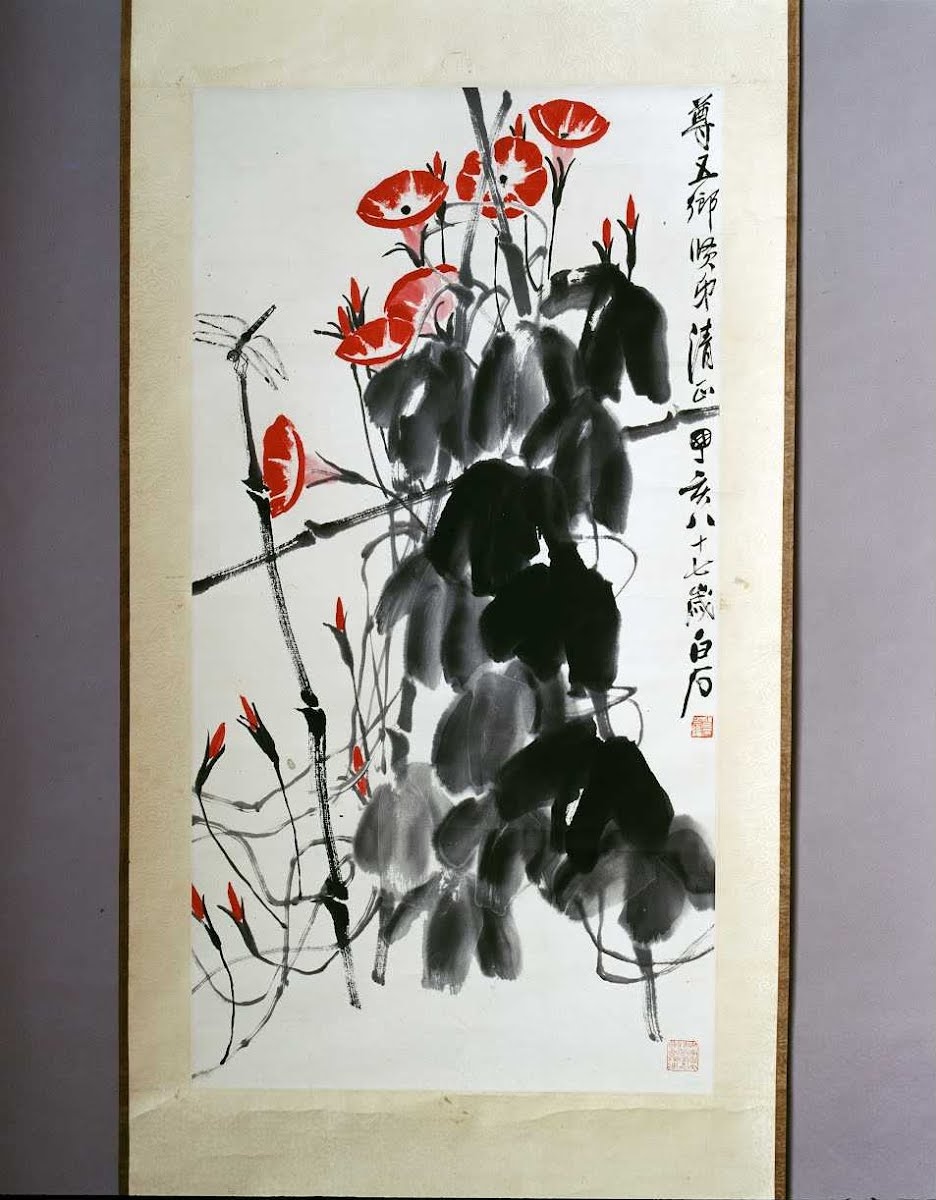 尊五鄉賢弟清正甲亥八十七歲白石